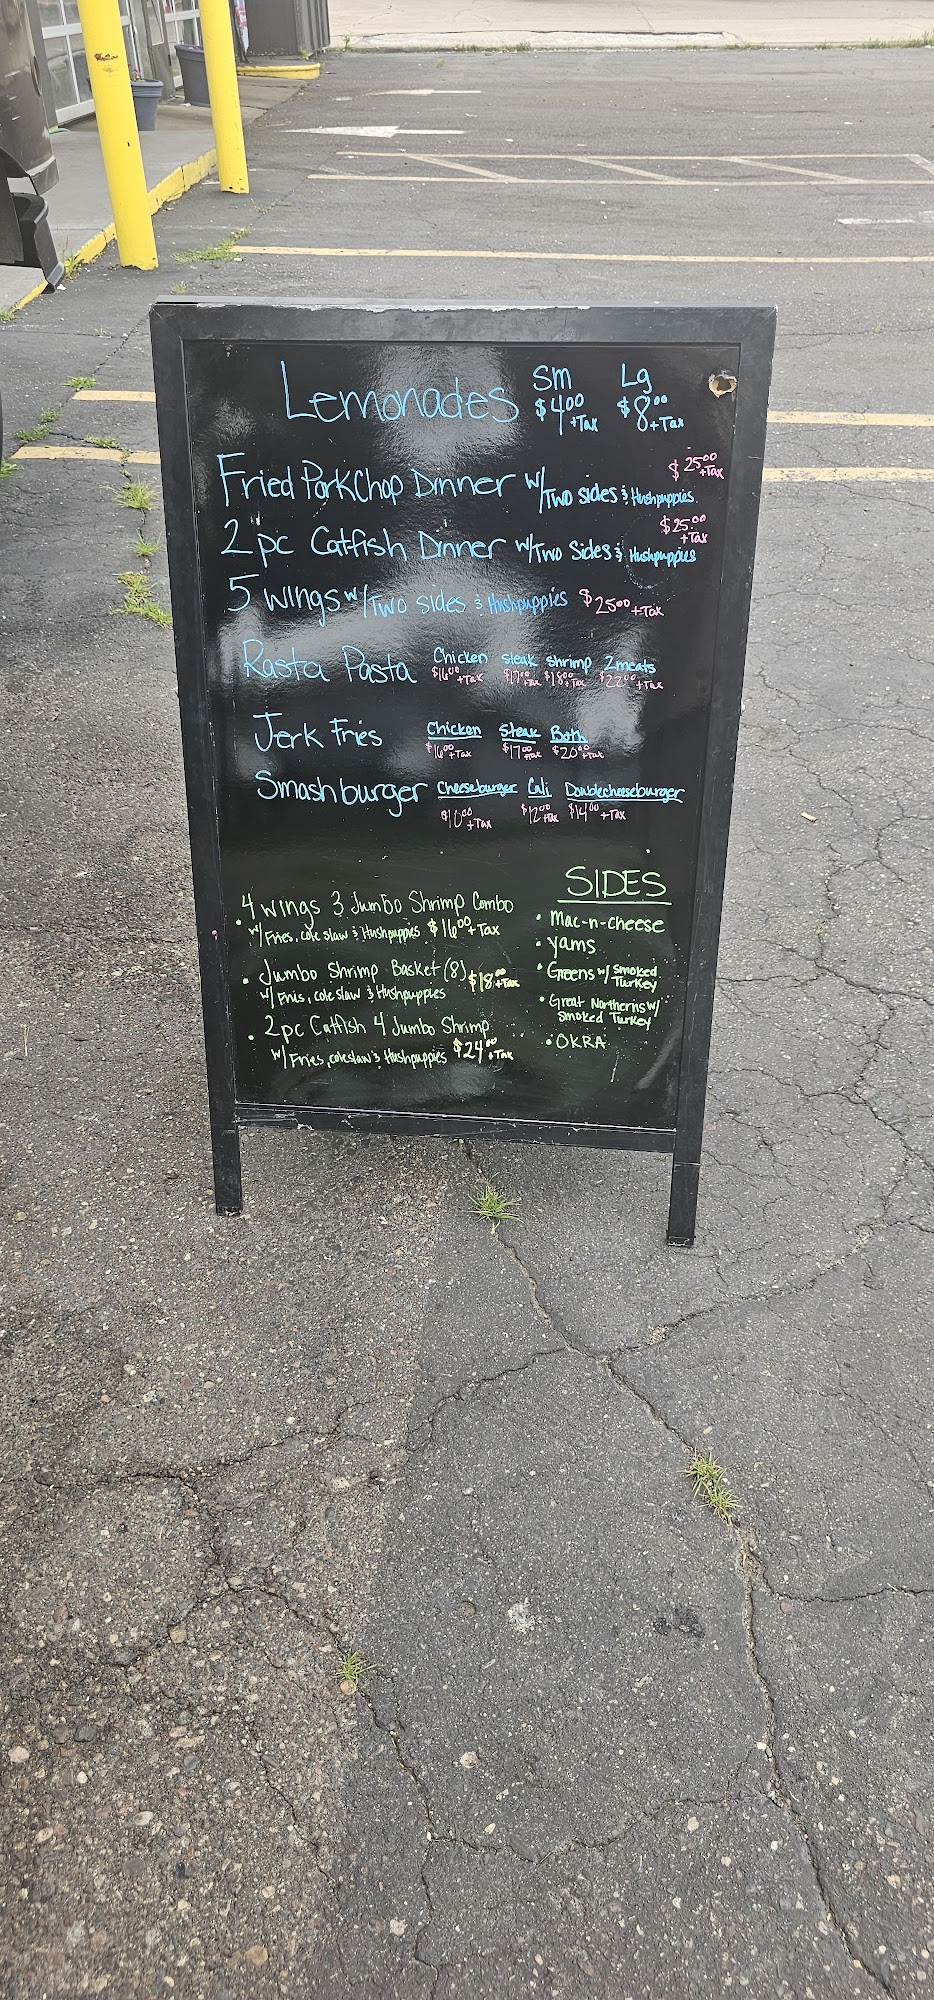 Lemonades Sm Lg
$4.00 +Tax $8.00 +Tax
Fried PorkChop Dinner w/Two sides & Hushpuppies $25.00 +Tax
2 pc Catfish Dinner w/Two Sides & Hushpuppies $25.00 +Tax
5 wings w/Two sides & Hushpuppies $25.00 +Tax
Rasta Pasta Chicken steak shrimp 2 meats
$16.00 +Tax $17.00 +Tax $18.00 +Tax $22.00 +Tax
Jerk Fries Chicken Steak Both
$16.00 +Tax $17.00 +Tax $20.00 +Tax
Smashburger Cheeseburger Cali Doublecheeseburger
$10.00 +Tax $12.00 +Tax $14.00 +Tax
• 4 wings 3 Jumbo Shrimp Combo
w/Fries, cole slaw & Hushpuppies $16.00 +Tax
• Jumbo Shrimp Basket (8) $18.00 +Tax
w/ Fries, cole slaw & Hushpuppies
• 2pc Catfish 4 Jumbo Shrimp
w/ Fries, coleslaw & Hushpuppies $24.00 +Tax
SIDES
• Mac-n-cheese
• yams
• Greens w/ Smoked
Turkey
• Great Northerns w/
Smoked Turkey
• OKRA